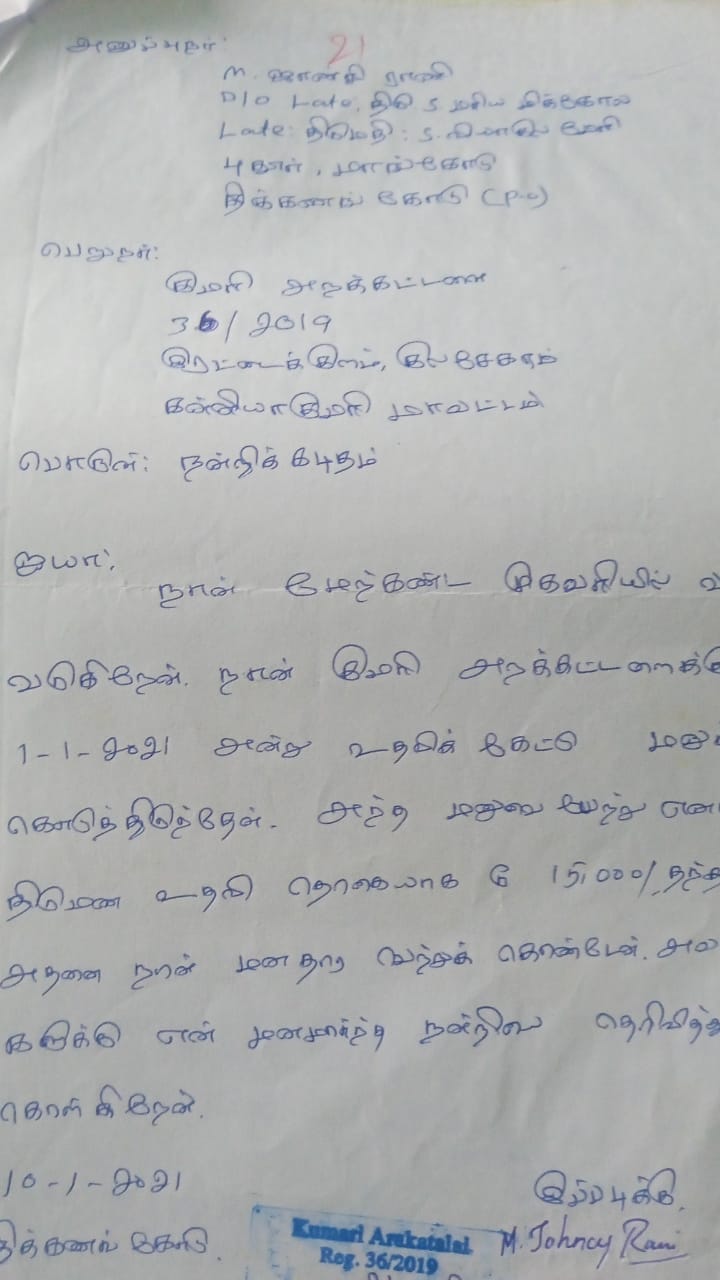 அனுப்புநர்:
21
M. ஜான்சி ராணி
D/O Late, திரு S மரிய மிக்கேல
Late: திருமதி: S.
மாங்கோடு
திக்கணங்கோடு (P.O)
பெறுநர்:
குமரி அறக்கட்டளை
36/2019
இரட்டைக்குளம், குலசேகரம்
கன்னியாகுமரி மாவட்டம்
பொருள்: நன்றிக் கடிதம்
ஐயா,
நான் மேற்கண்ட முகவரியில் வ
வருகிறேன். நான் குமரி அறக்கட்டளைக்கு
1-1-2021 அன்று உதவிக் கேட்டு மனு
கொடுத்திருந்தேன். அந்த மனுவை ஏற்று என
திருமண உதவி தொகையாக ரூ 15,000/ தந்த
அதனை நான் மனதார பெற்றுக் கொண்டேன். அவ
களுக்கு என் மனமார்ந்த நன்றியை தெரிவித்து
கொள்கிறேன்.
10-1-2021
இப்படிக்கு,
திக்கணங்கோடு.
Kumari Arakatalai
Reg. 36/2019
M. Johncy Rani